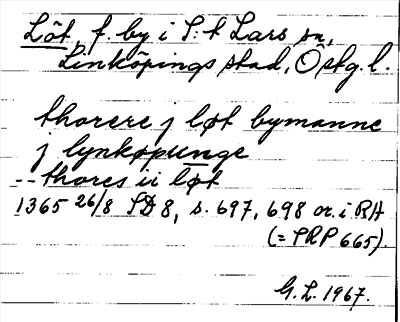 Löt, f. by i S:t Lars sn,
Linköpings stad, Östg.l.
thorere j løt bymanne
j lynkøpunge
-- thores ii løt
1365 26/8 SD 8, s. 697, 698 or. i RA
(= SRP 665).
G. L. 1967.